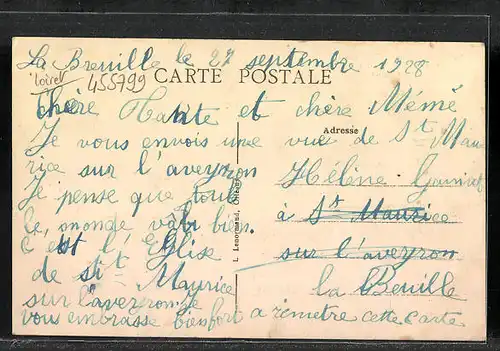 La Breuille le 27 septembre 1928
Loiret
455799
CARTE POSTALE
Chère Tante et chère Mémé
Adresse
Je vous envois une vue de St Mau
rice sur l'aveyron
Je pense que tout
le monde va bien.
C est l'Eglise
de st Maurice
sur l'aveyron je
vous embrasse bien fort
L. Lenormand, Orléans
Hélène
à St Maurice
sur l'aveyron
la Breuille
a remetre cette carte